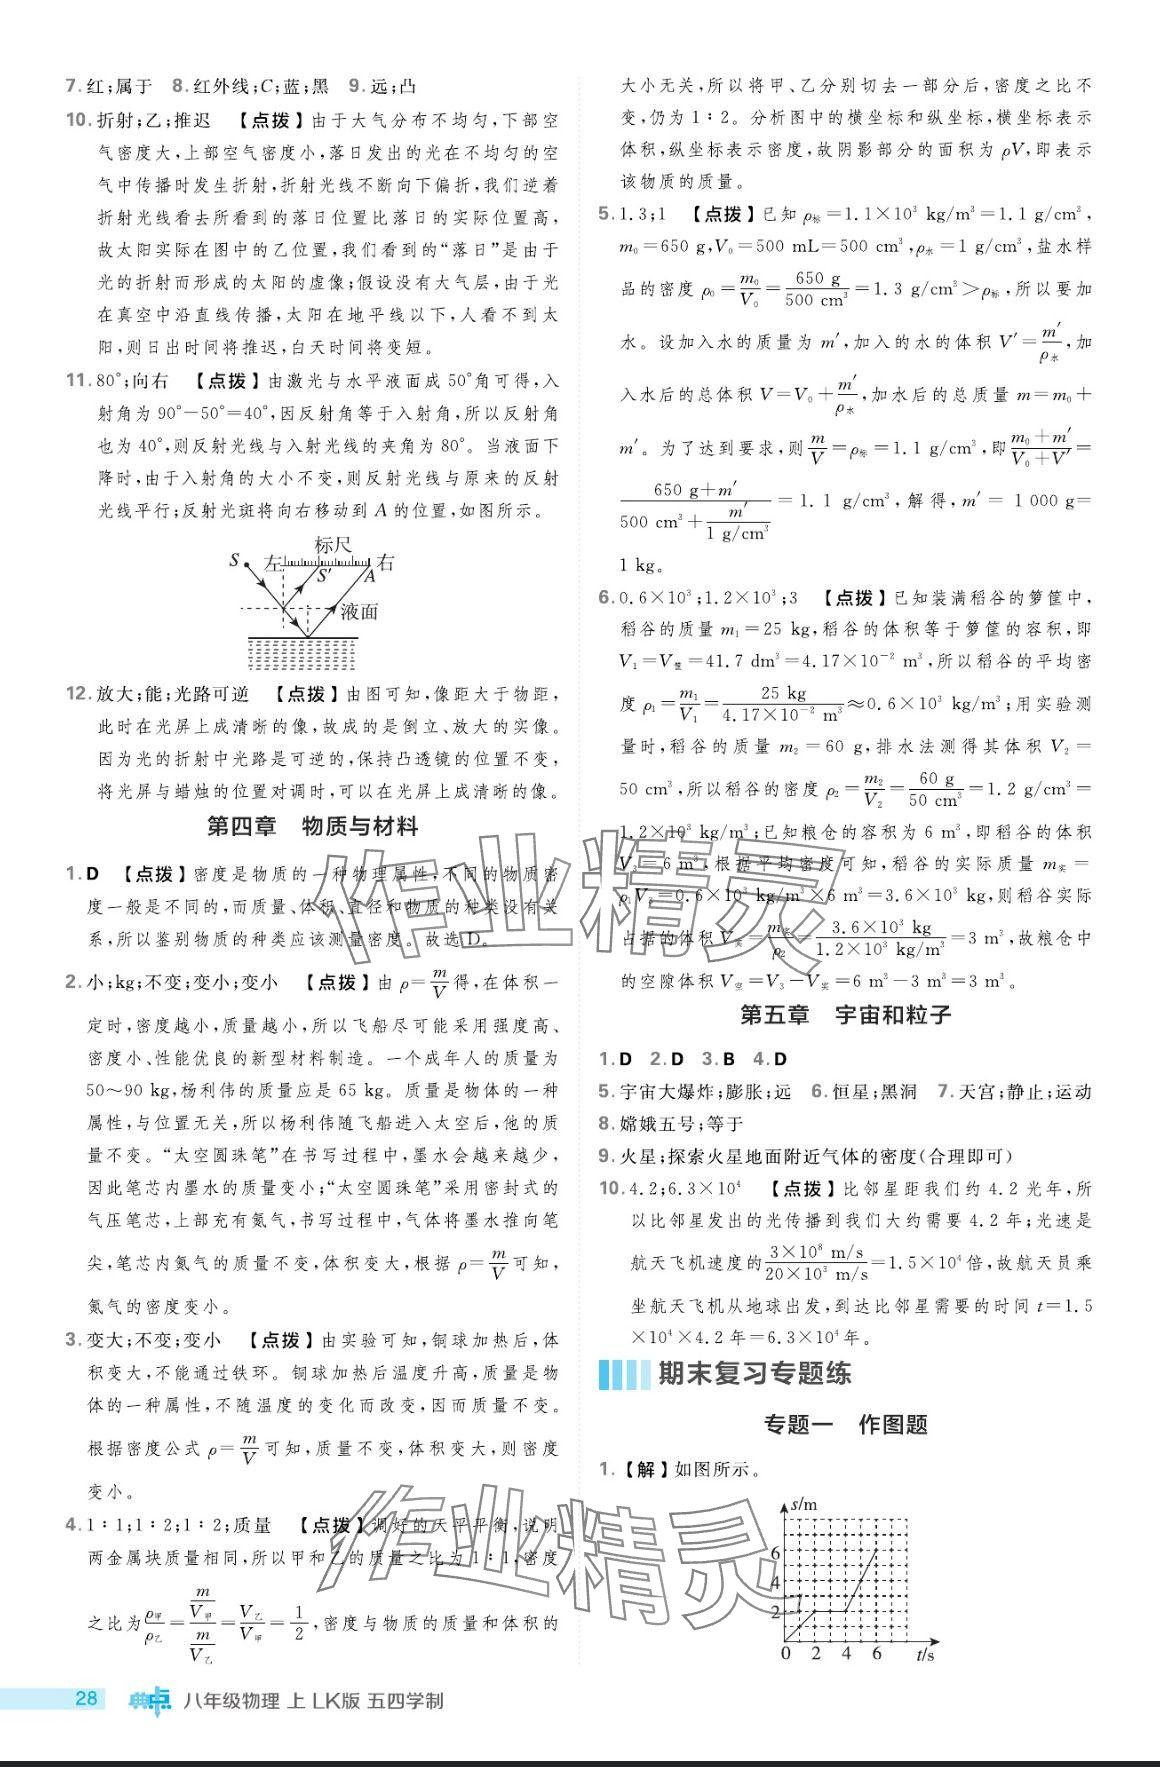 7. 红;属于　8. 红外线;C;蓝;黑　9. 远;凸
10. 折射;乙;推迟　【点拨】由于大气分布不均匀,下部空
气密度大,上部空气密度小,落日发出的光在不均匀的空
气中传播时发生折射,折射光线不断向下偏折,我们逆着
折射光线看去所看到的落日位置比落日的实际位置高,
故太阳实际在图中的乙位置,我们看到的“落日”是由于
光的折射而形成的太阳的虚像;假设没有大气层,由于光
在真空中沿直线传播,太阳在地平线以下,人看不到太
阳,则日出时间将推迟,白天时间将变短。
11. 80°;向右　【点拨】由激光与水平液面成 50°角可得,入
射角为 90°−50°=40°,因反射角等于入射角,所以反射角
也为 40°,则反射光线与入射光线的夹角为 80°。当液面下
降时,由于入射角的大小不变,则反射光线与原来的反射
光线平行;反射光斑将向右移动到 A 的位置,如图所示。
标尺
S 左 右
S′ A
液面
12. 放大;能;光路可逆　【点拨】由图可知,像距大于物距,
此时在光屏上成清晰的像,故成的是倒立、放大的实像。
因为光的折射中光路是可逆的,保持凸透镜的位置不变,
将光屏与蜡烛的位置对调时,可以在光屏上成清晰的像。
第四章　物质与材料
1. D　【点拨】密度是物质的一种物理属性,不同的物质密
度一般是不同的,而质量、体积、直径和物质的种类没有关
系,所以鉴别物质的种类应该测量密度。故选 D。
2. 小;kg;不变;变小;变小　【点拨】由 ρ=m/V 得,在体积一
定时,密度越小,质量越小,所以飞船尽可能采用强度高、
密度小、性能优良的新型材料制造。一个成年人的质量为
50～90 kg,杨利伟的质量应是 65 kg。质量是物体的一种
属性,与位置无关,所以杨利伟随飞船进入太空后,他的质
量不变。“太空圆珠笔”在书写过程中,墨水会越来越少,
因此笔芯内墨水的质量变小;“太空圆珠笔”采用密封式的
气压笔芯,上部充有氮气,书写过程中,气体将墨水推向笔
尖,笔芯内氮气的质量不变,体积变大,根据 ρ=m/V 可知,
氮气的密度变小。
3. 变大;不变;变小　【点拨】由实验可知,铜球加热后,体
积变大,不能通过铁环。铜球加热后温度升高,质量是物
体的一种属性,不随温度的变化而改变,因而质量不变。
根据密度公式 ρ=m/V 可知,质量不变,体积变大,则密度
变小。
4. 1∶1;1∶2;1∶2;质量　【点拨】调好的天平平衡,说明
两金属块质量相同,所以甲和乙的质量之比为 1∶1,密度
之比为 ρ甲/ρ乙=(m/V甲)/(m/V乙)=V乙/V甲=1/2,密度与物质的质量和体积的
大小无关,所以将甲、乙分别切去一部分后,密度之比不
变,仍为 1∶2。分析图中的横坐标和纵坐标,横坐标表示
体积,纵坐标表示密度,故阴影部分的面积为 ρV,即表示
该物质的质量。
5. 1.3;1　【点拨】已知 ρ标=1.1×10³ kg/m³=1.1 g/cm³,
m₀=650 g,V₀=500 mL=500 cm³,ρ水=1 g/cm³,盐水样
品的密度 ρ₀=m₀/V₀=650 g/500 cm³=1.3 g/cm³>ρ标,所以要加
水。设加入水的质量为 m′,加入的水的体积 V′=m′/ρ水,加
入水后的总体积 V=V₀+m′/ρ水,加水后的总质量 m=m₀+
m′。为了达到要求,则 m/V=ρ标=1.1 g/cm³,即(m₀+m′)/(V₀+V′)=
(650 g+m′)/(500 cm³+m′/(1 g/cm³))=1.1 g/cm³,解得,m′=1 000 g=
1 kg。
6. 0.6×10³;1.2×10³;3　【点拨】已知装满稻谷的箩筐中,
稻谷的质量 m₁=25 kg,稻谷的体积等于箩筐的容积,即
V₁=V筐=41.7 dm³=4.17×10⁻² m³,所以稻谷的平均密
度 ρ₁=m₁/V₁=25 kg/(4.17×10⁻² m³)≈0.6×10³ kg/m³;用实验测
量时,稻谷的质量 m₂=60 g,排水法测得其体积 V₂=
50 cm³,所以稻谷的密度 ρ₂=m₂/V₂=60 g/50 cm³=1.2 g/cm³=
1.2×10³ kg/m³;已知粮仓的容积为 6 m³,即稻谷的体积
V₃=6 m³,根据平均密度可知,稻谷的实际质量 m实=
ρ₁V₃=0.6×10³ kg/m³×6 m³=3.6×10³ kg,则稻谷实际
占据的体积 V实=m实/ρ₂=3.6×10³ kg/(1.2×10³ kg/m³)=3 m³,故粮仓中
的空隙体积 V空=V₃−V实=6 m³−3 m³=3 m³。
第五章　宇宙和粒子
1. D　2. D　3. B　4. D
5. 宇宙大爆炸;膨胀;远　6. 恒星;黑洞　7. 天宫;静止;运动
8. 嫦娥五号;等于
9. 火星;探索火星地面附近气体的密度(合理即可)
10. 4.2;6.3×10⁴　【点拨】比邻星距我们约 4.2 光年,所
以比邻星发出的光传播到我们大约需要 4.2 年;光速是
航天飞机速度的 (3×10⁸ m/s)/(20×10³ m/s)=1.5×10⁴倍,故航天员乘
坐航天飞机从地球出发,到达比邻星需要的时间 t=1.5
×10⁴×4.2 年=6.3×10⁴年。
期末复习专题练
专题一　作图题
1. 【解】如图所示。
s/m
6
4
2
0 2 4 6 t/s
作业精灵
作业精灵
28 典点 八年级物理 上 LK版 五四学制